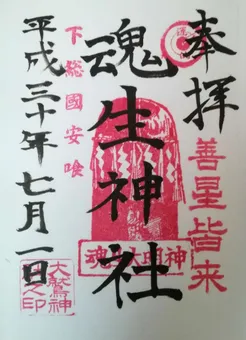 奉拝
善星皆来
魂生神社
下総國安喰
平成三十年七月一日
大鷲神
之印